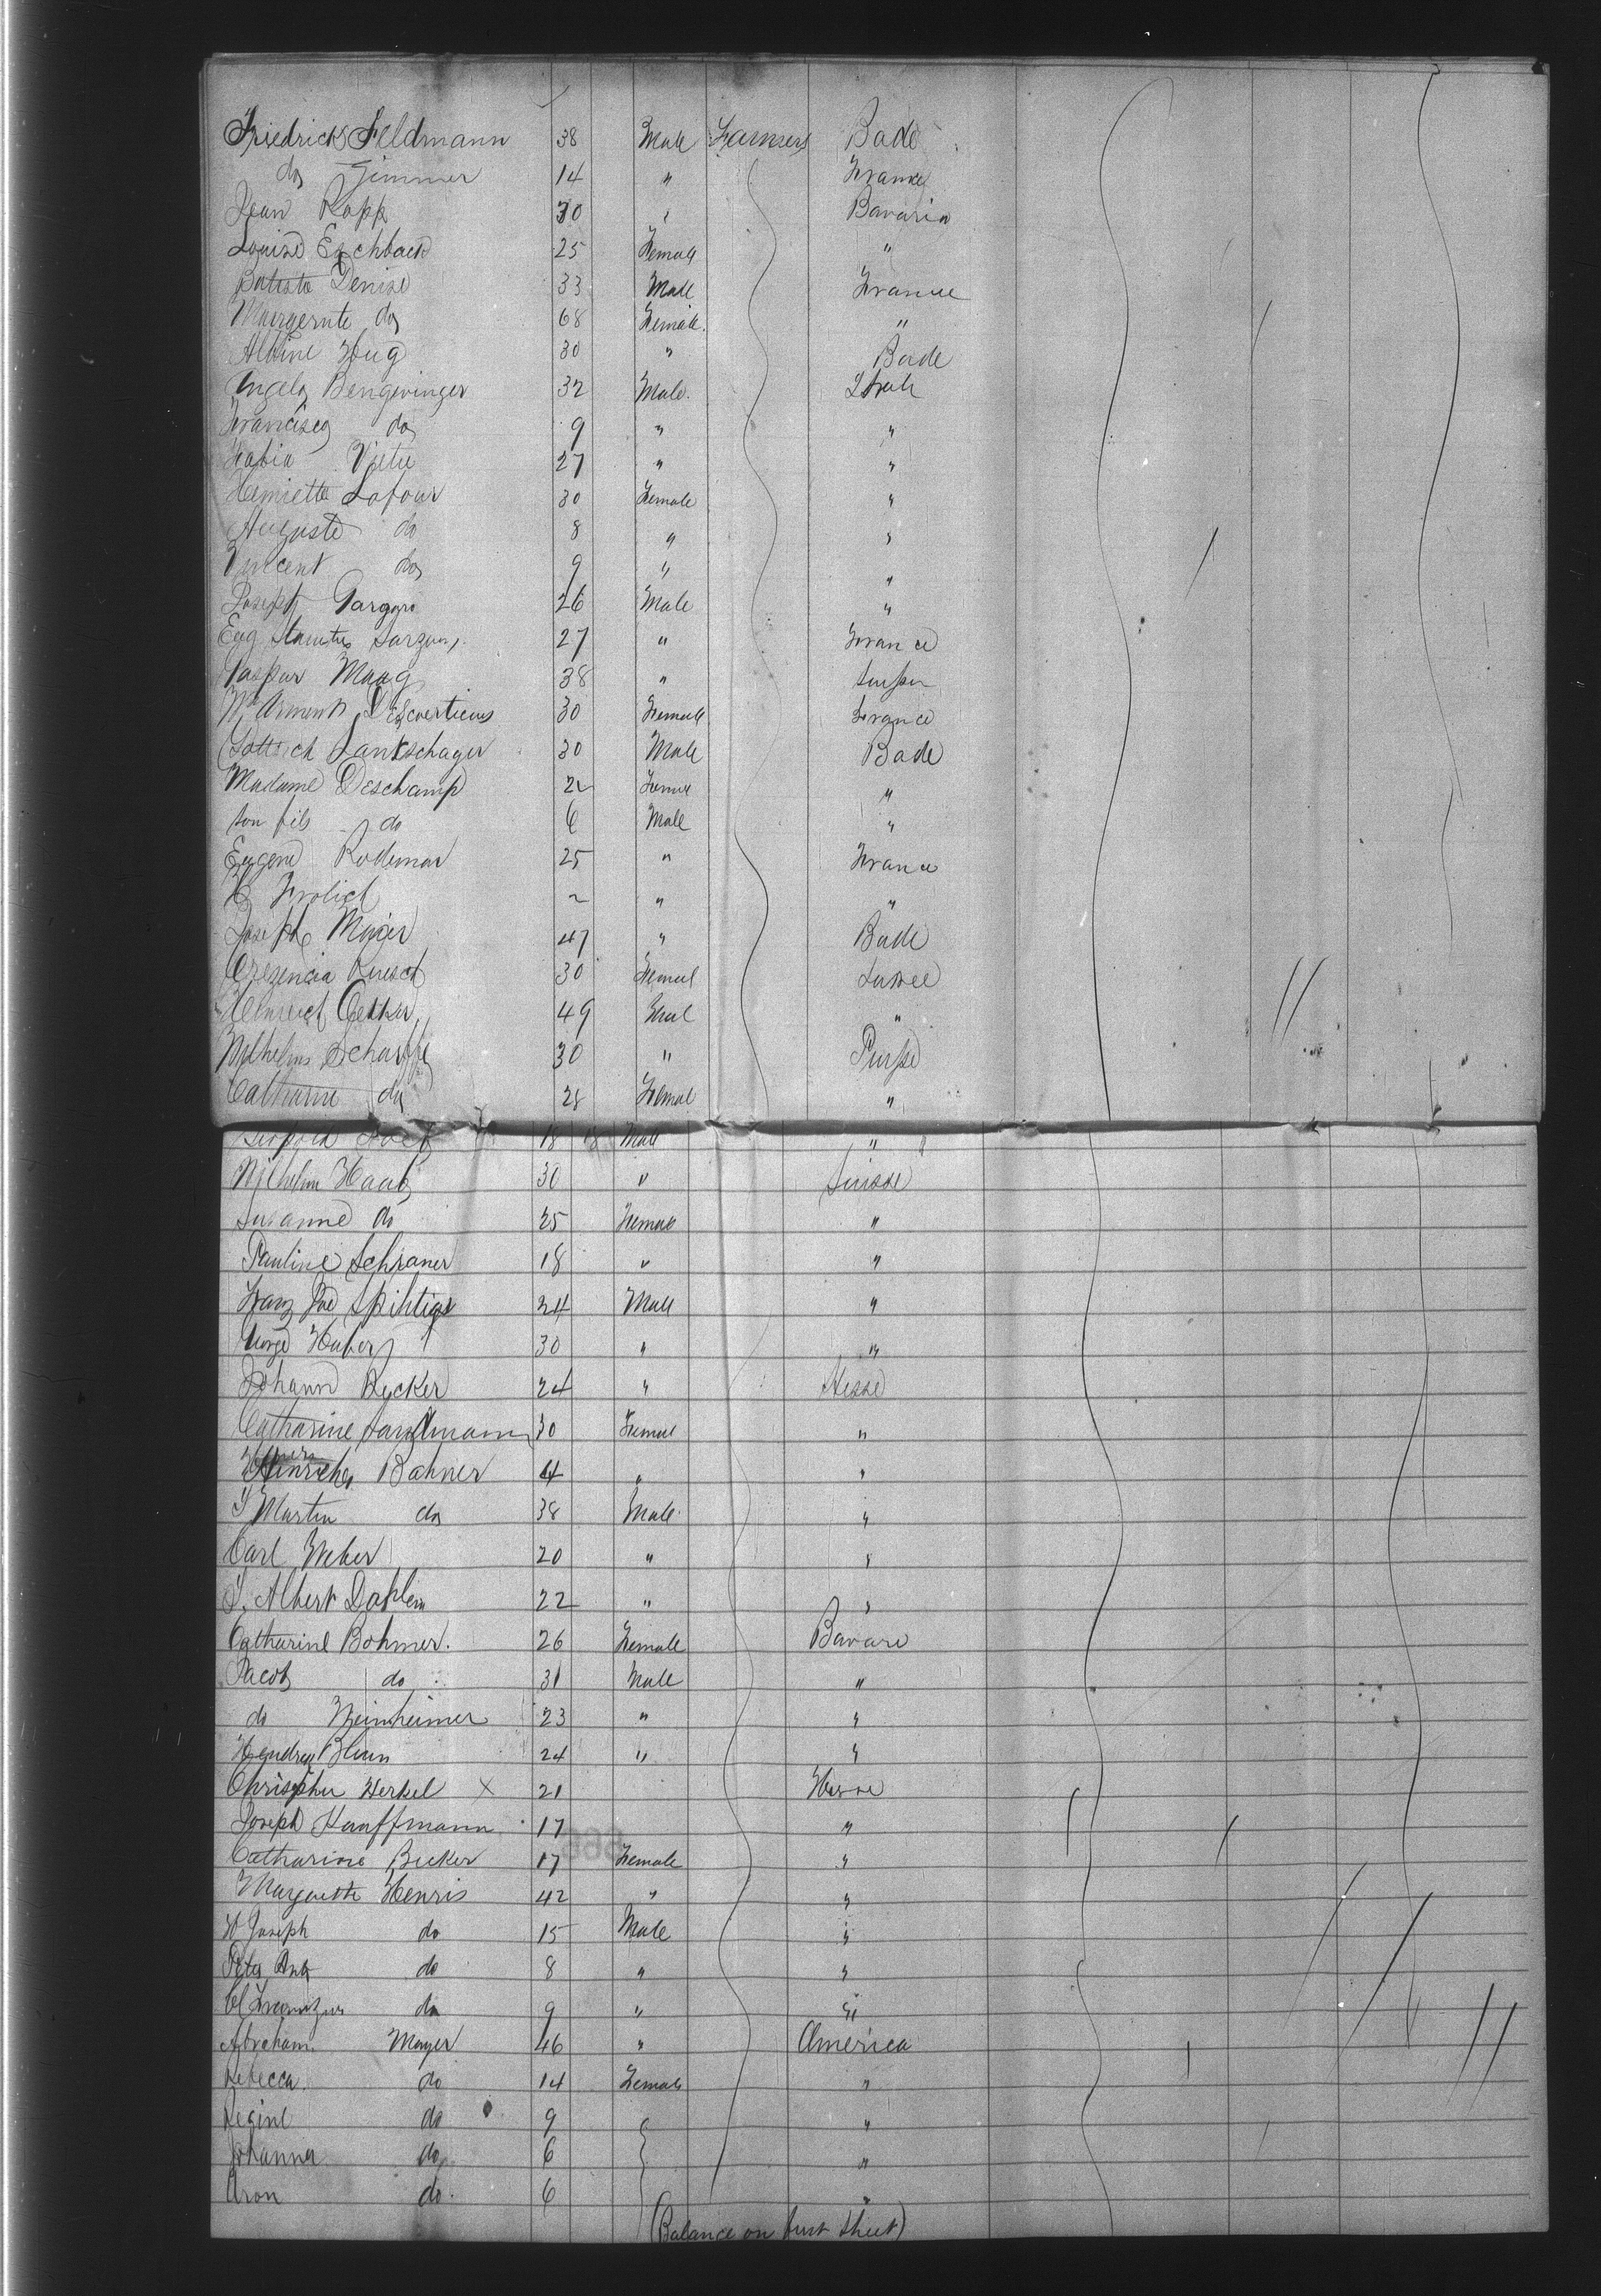 Friedrich Feldmann 38 Male Farmers Bade
do Zimmer 14 " France
Jean Rapp 30 " Bavaria
Louise Eschbach 25 Female "
Batista Denise 33 Male France
Margerute do 68 Female "
Albine Hug 30 " Bade
Angelo Bengevinger 32 Male
Francisco do 9 " "
27 " "
Henriette Lafour 30 Female "
Auguste do 8 " "
Vincent do 9 " "
Joseph 26 Male "
Eug 27 " France
Gaspar Maag 38 "
30 Female France
30 Male Bade
Madame Deschamp 22 "
son fils do 6 Male "
Eugene Rodemar 25 " France
H Frolich " "
Joseph Maier 47 " Bade
Cresencia Ruesch 30
Heinrich 49 "
Wilhelm Scharffe 30 "
Catharine do 28 Femal "
Leopold 18 18 Male "
Wilhelm Haab 30 " Suisse
Susanne do 25 Female "
Pauline Schraner 18 " "
Franz Jos 24 Male "
George Huber 30 " "
Johann Rycker 24 " Hesse
Catharine Sandlmann 30 Femal "
Bahner 4 " "
J Martin do 38 Male "
Carl Weber 20 " "
J. Albert Dahlem 22 " "
Catharine Bohmer. 26 Female Bavare
Jacob do 31 Male "
do Weinheimer 23 " "
Hendrey Blum 24 " "
Christopher Herkel X 21 Hesse
Joseph Kauffmann 17 "
Catharine Becker 17 Female "
Margarette Henris 42 " "
W Joseph do 15 Male "
Peter Ant do 8 " "
do 9 " "
Abraham Mayer 46 " America
Rebecca do 14 Female "
Regine do 9 "
Johanna do 6 "
Aron do. 6 "
(Balance on first sheet)